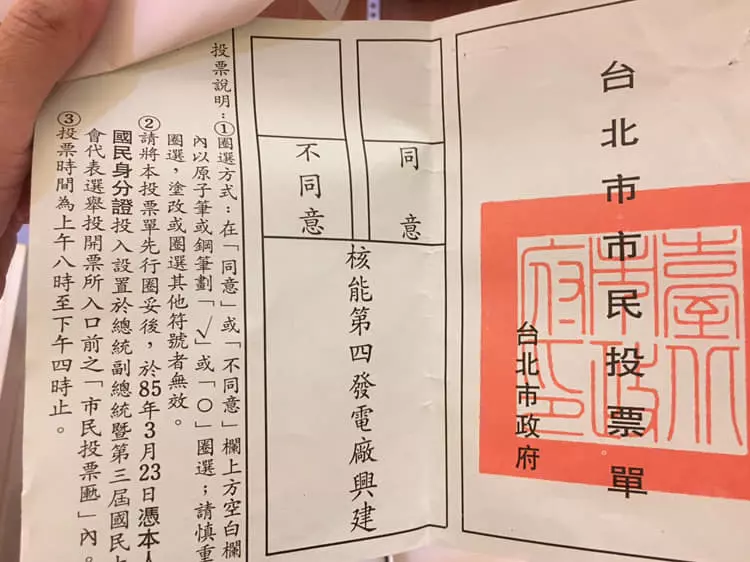 台北市市民投票單
台北市政府
臺北市政府印
同意
不同意
核能第四發電廠興建
投票說明：①圈選方式：在「同意」或「不同意」欄上方空白欄
內以原子筆或鋼筆劃「√」或「○」圈選；請慎重
圈選，塗改或圈選其他符號者無效。
②請將本投票單先行圈妥後，於85年3月23日憑本人
國民身分證投入設置於總統副總統暨第三屆國民大
會代表選舉投開票所入口前之「市民投票匭」內。
③投票時間為上午八時至下午四時止。